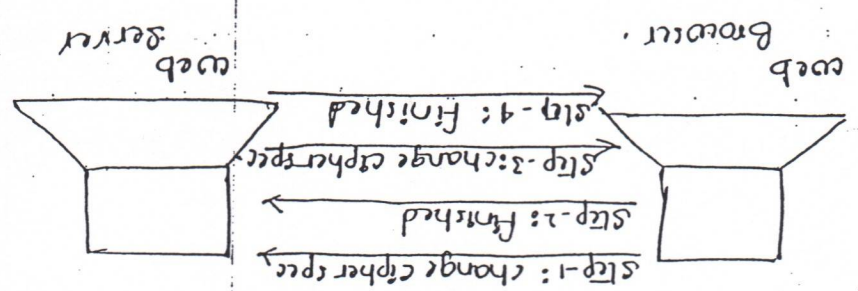 Step-1: change cipher spec
Step-2: Finished
Step-3: change cipher spec
Step-4: Finished
web
Browser.
web
Server